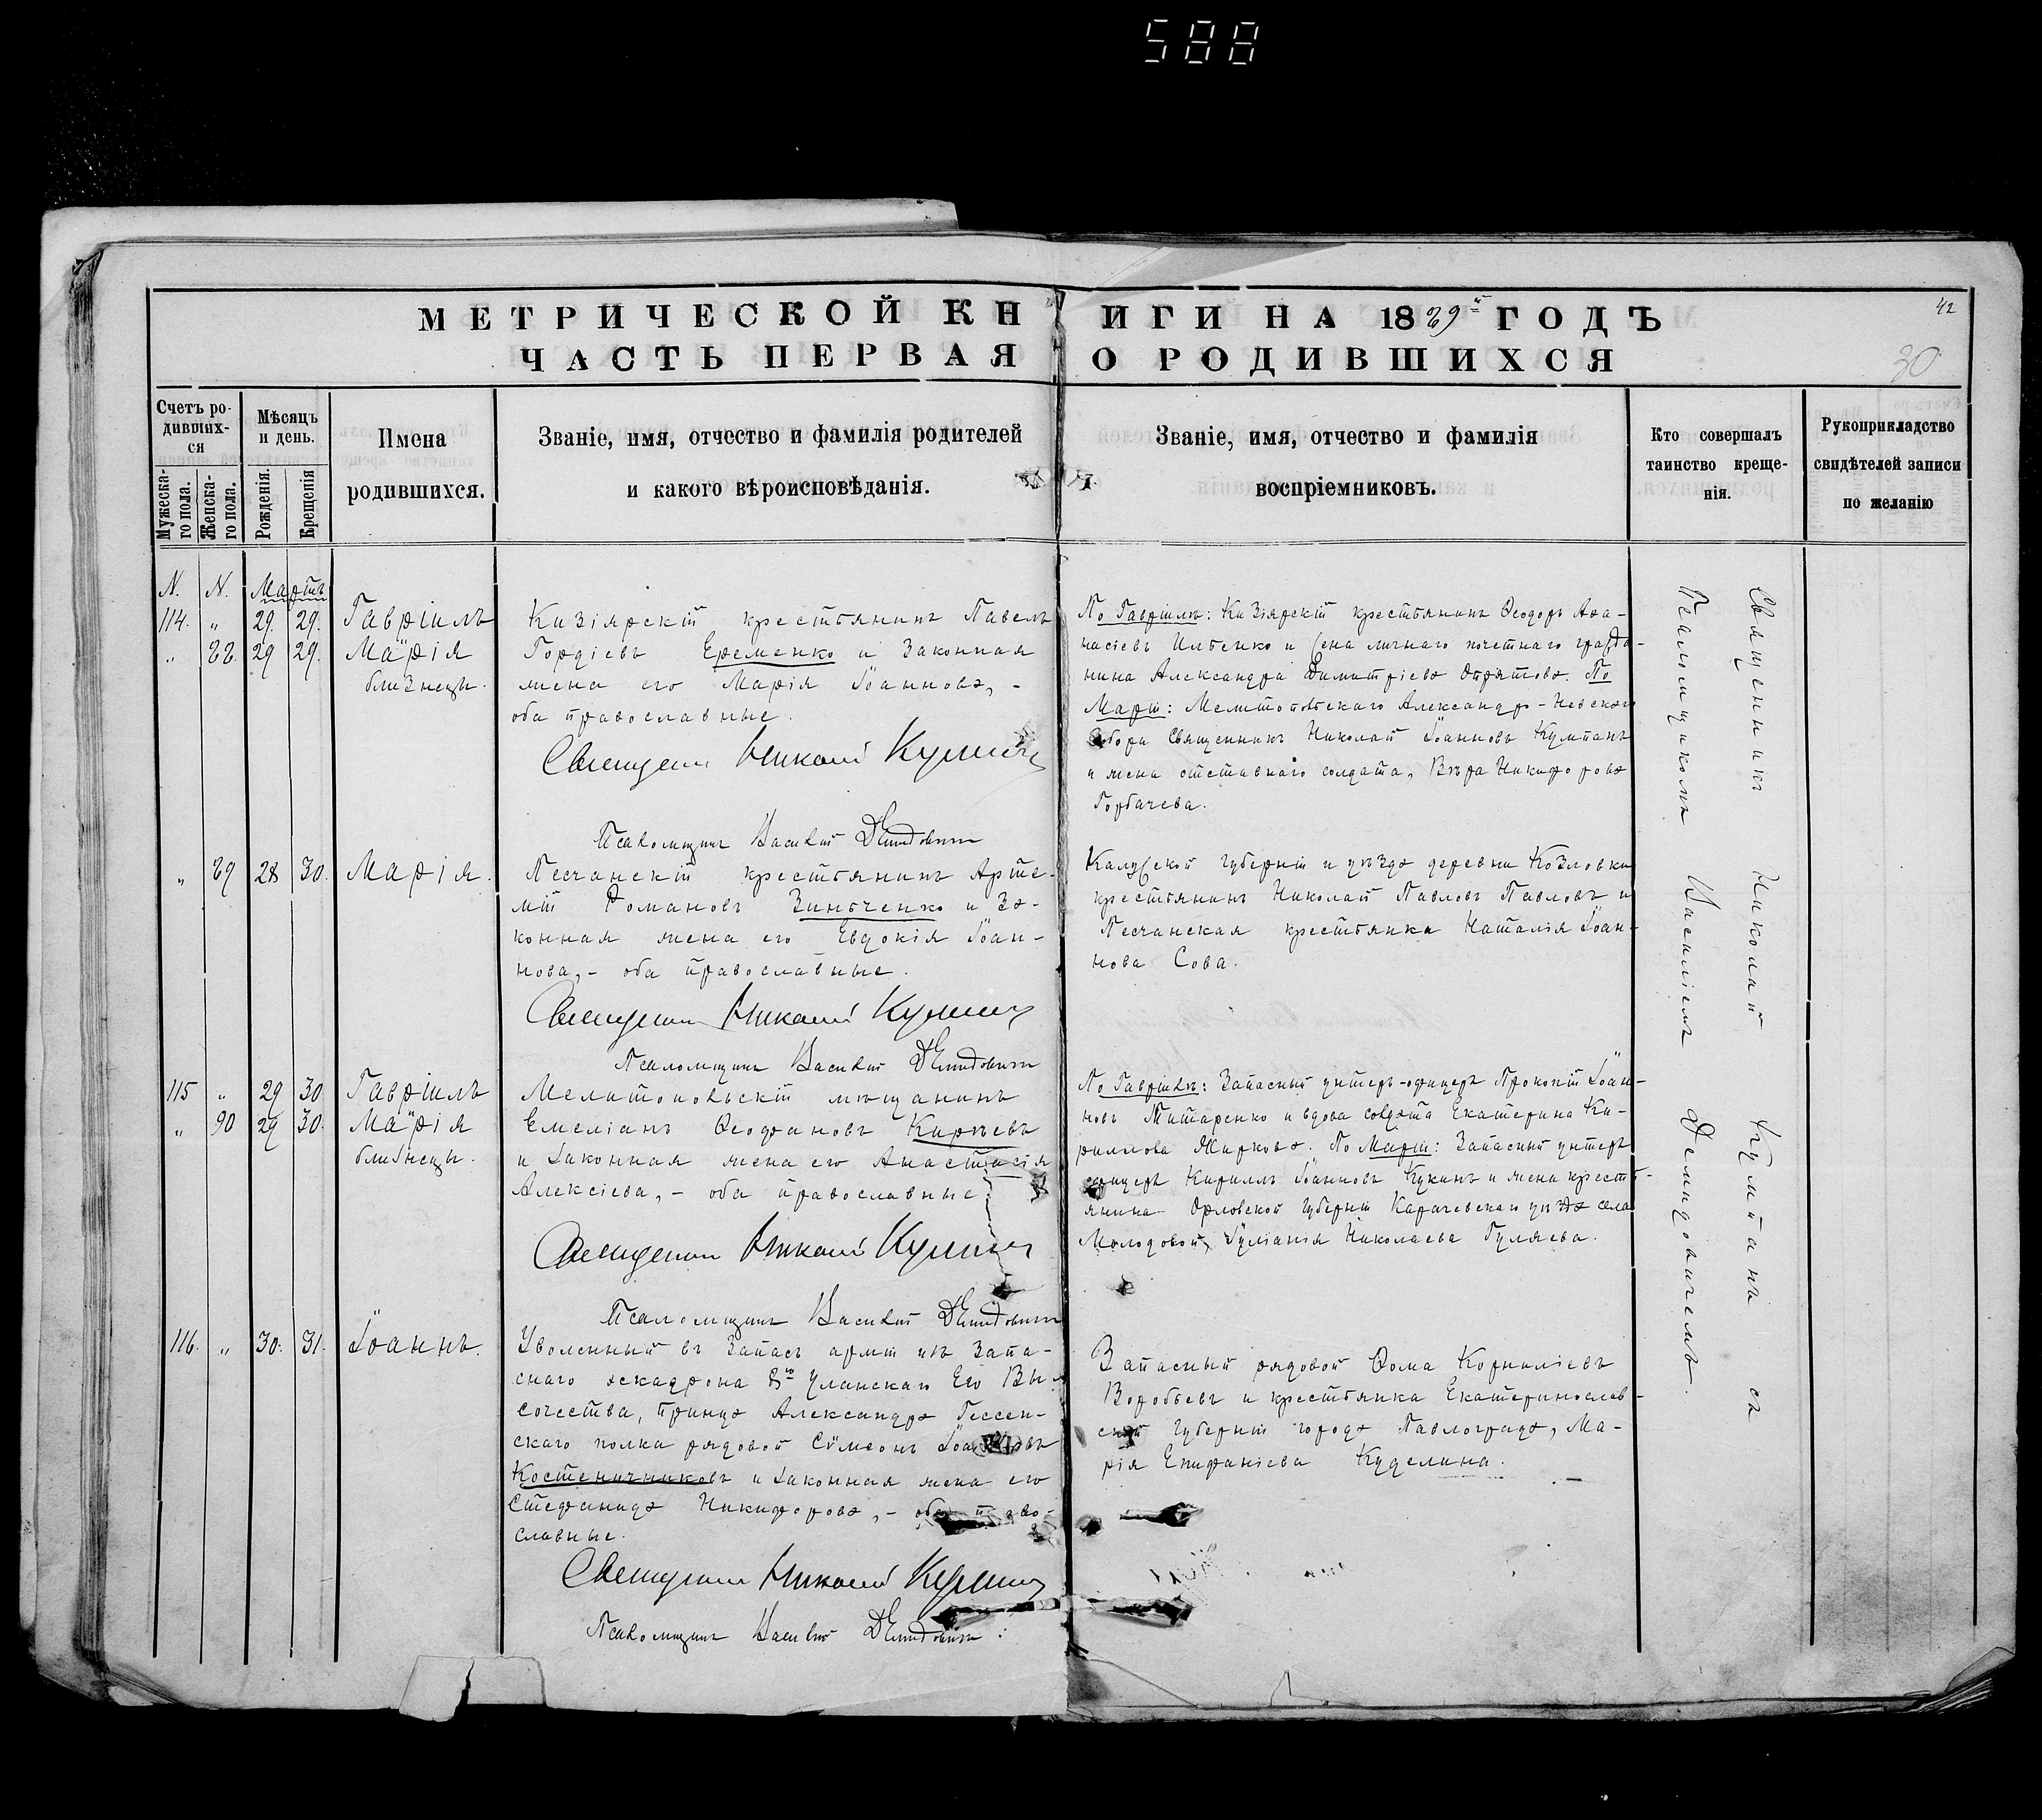 588
МЕТРИЧЕСКОЙ КНИГИ НА 1889й ГОДЪ
42
ЧАСТЬ ПЕРВАЯ О РОДИВШИХСЯ
30
Счетъ ро-
дивших-
ся
Мужеска-
го пола.
Женска-
го пола.
Мѣсяцъ
и день.
Рожденія.
Крещенія
Имена
родившихся.
Званіе, имя, отчество и фамилія родителей
и какого вѣроисповѣданія.
Званіе, имя, отчество и фамилія
воспріемниковъ.
Кто совершалъ
таинство креще-
нія.
Рукоприкладство
свидѣтелей записи
по желанію
N. N. Мартъ
114. " 29. 29. Гавріилъ
" 88. 29 29. Марія
близнецы.
Кизіярскій крестьянинъ Павелъ
Гордіевъ Еременко и законная
жена его Марія Іоаннова, -
оба православные.
Священникъ Николай
Псаломщикъ Василій Демидовичъ
По Гавріилѣ: Кизіярскій крестьянинъ Ѳеодоръ Аѳа-
насіевъ Ильенко и жена личнаго почетнаго гражда-
нина Александра Димитріева По
Маріи: Мелитопольскаго Александро-Невскаго
Собора Священникъ Николай Іоанновъ Кумпанъ
и жена отставнаго солдата, Вѣра Никифорова
Горбачева.
" 89 28 30. Марія.
Песчанскій крестьянинъ Арте-
мій Романовъ Зинченко и за-
конная жена его Евдокія Іоан-
нова, - оба православные.
Священникъ Николай
Псаломщикъ Василій Демидовичъ
Калужской губерніи и уѣзда деревни Козловки
крестьянинъ Николай Павловъ Павловъ и
Песчанская крестьянка Наталія Іоан-
нова Сова.
115 " 29 30 Гавріилъ
" 90 29 30. Марія
близнецы.
Мелитопольскій мѣщанинъ
Емеліанъ Ѳеофановъ Кирѣевъ
и законная жена его Анастасія
Алексіева, - оба православные
Священникъ Николай
Псаломщикъ Василій Демидовичъ
По Гавріилѣ: Запасный унтеръ-офицеръ Прокопій Іоан-
новъ Митаренко и вдова солдата Екатерина Ки-
риллова Жиркова. По Маріи: Запасный унтеръ
офицеръ Кириллъ Іоанновъ Кукинъ и жена кресть-
янина Орловской губерніи Карачевскаго уѣзда села
Молодовой, Іуліанія Николаева Гуляева.
116. " 30. 31. Іоаннъ.
Уволенный въ запасъ арміи изъ Запа-
снаго эскадрона 8го Уланскаго Его Вы-
сочества, принца Александра Гессен-
скаго полка рядовой Сѵмеонъ Іоанновъ
Костеничниковъ и законная жена его
Стефанида Никифорова, - оба право-
славные.
Священникъ Николай
Псаломщикъ Василій Демидовичъ.
Запасный рядовой Ѳома Корниліевъ
Воробьевъ и крестьянка Екатеринослав-
ской губерніи города Павлограда, Ма-
рія Епифаніева Куделина.
Священникъ Николай Кумпанъ съ
Псаломщикомъ Василіемъ Демидовичемъ.